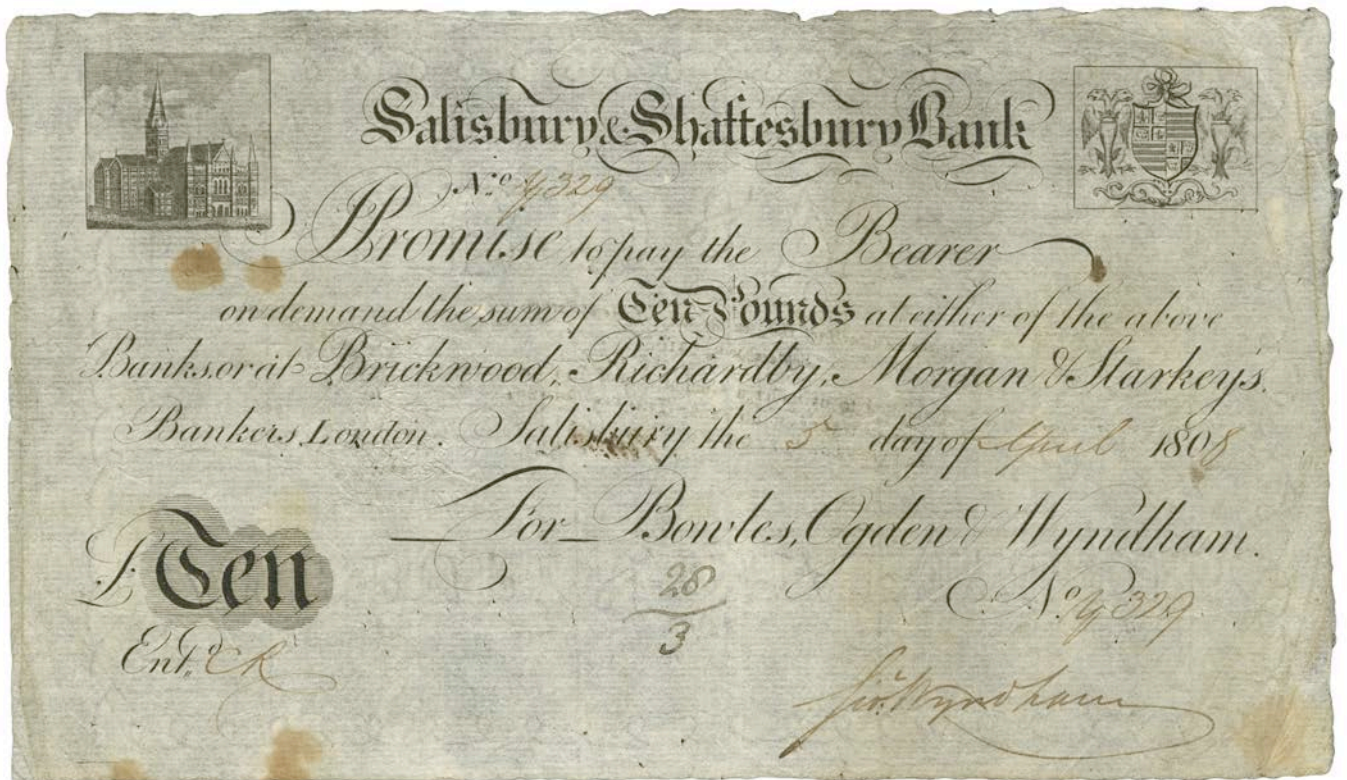 Salisbury & Shaftesbury Bank
No. y329
I Promise to pay the Bearer
on demand the sum of Ten Pounds at either of the above
Banks, or at Brickwood, Richardby, Morgan & Starkey's.
Bankers, London. Salisbury the 5 day of April 1808
For Bowles, Ogden & Wyndham.
£ Ten
28
3
No. y329
Ent.d CR
Wyndham